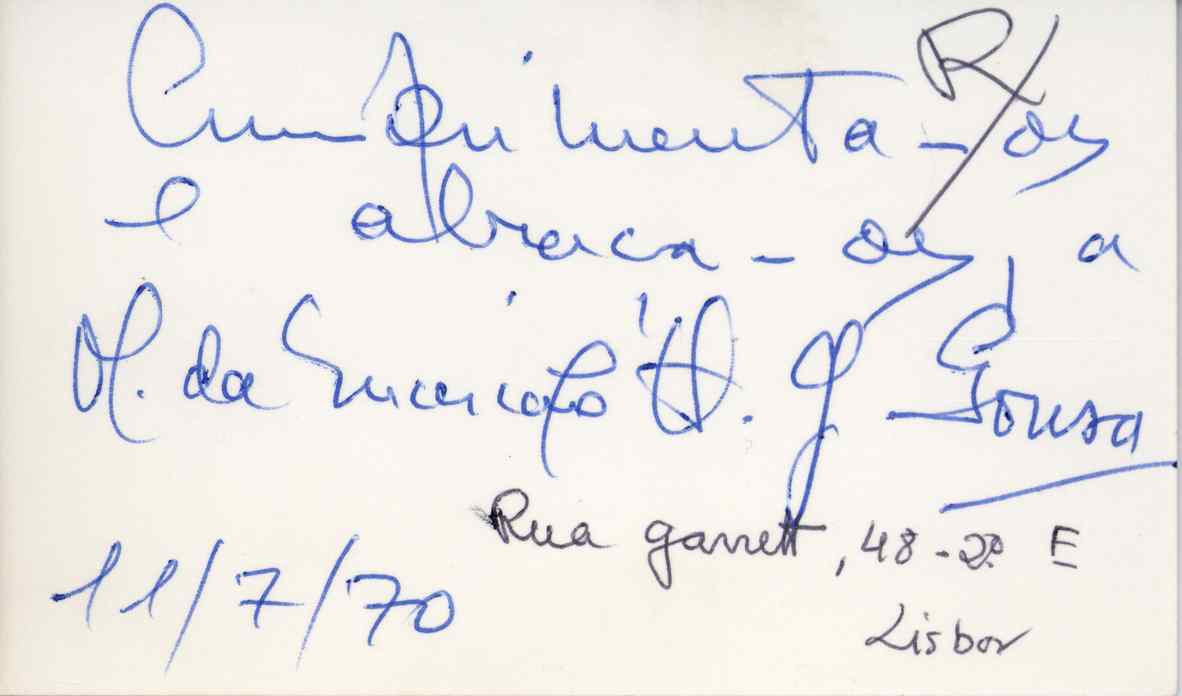 R/
Cumprimenta-os
e abraça-os, a
M. da Conceição H. G. Sousa
Rua Garrett, 48-2º E
11/7/70
Lisboa